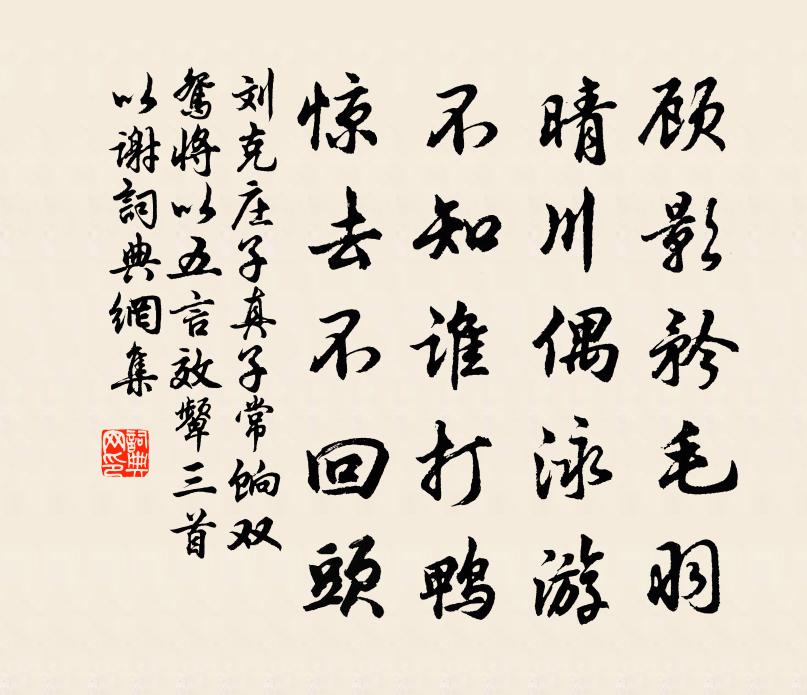 顾影矜毛羽
晴川偶泳游
不知谁打鴨
惊去不回頭
刘克庄子真子常餉双
鴛將以五言效顰三首
以谢詞典網集
詞典网印